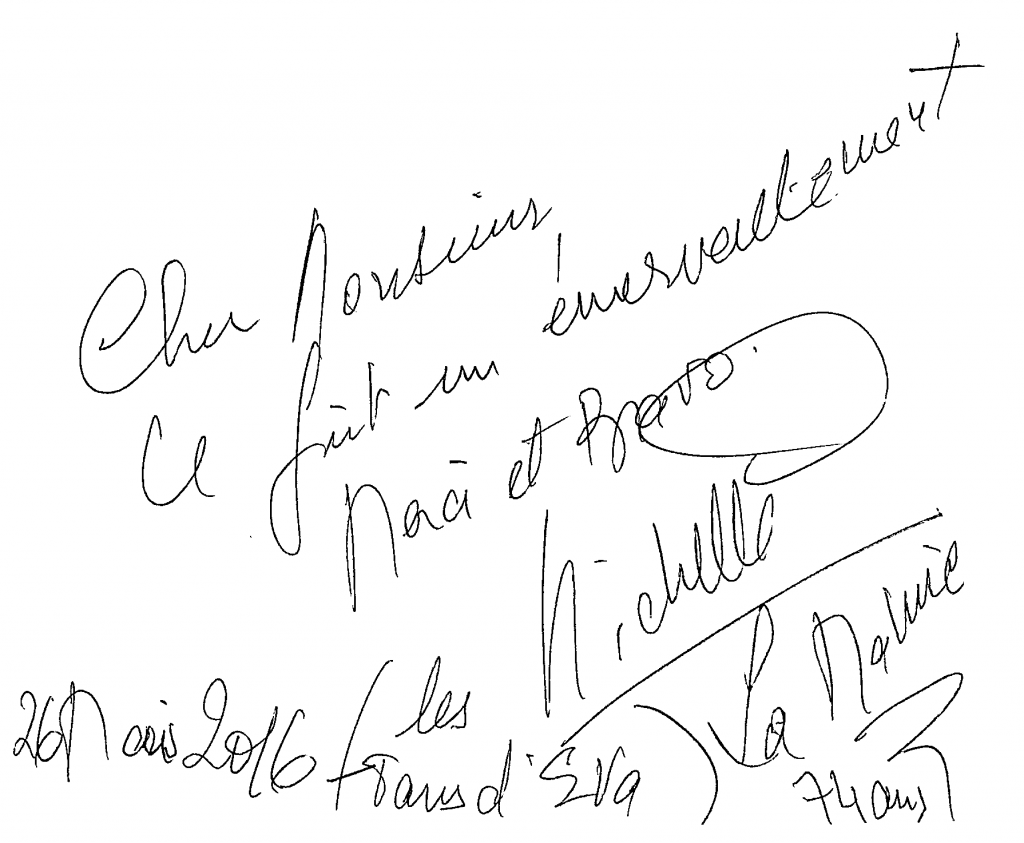 Cher Monsieur,
Ce fût un émerveillement
Merci et Bravo.
Michelle
La Mamie
74 ans
26 Mars 2016 (les
7 ans d'Eva)